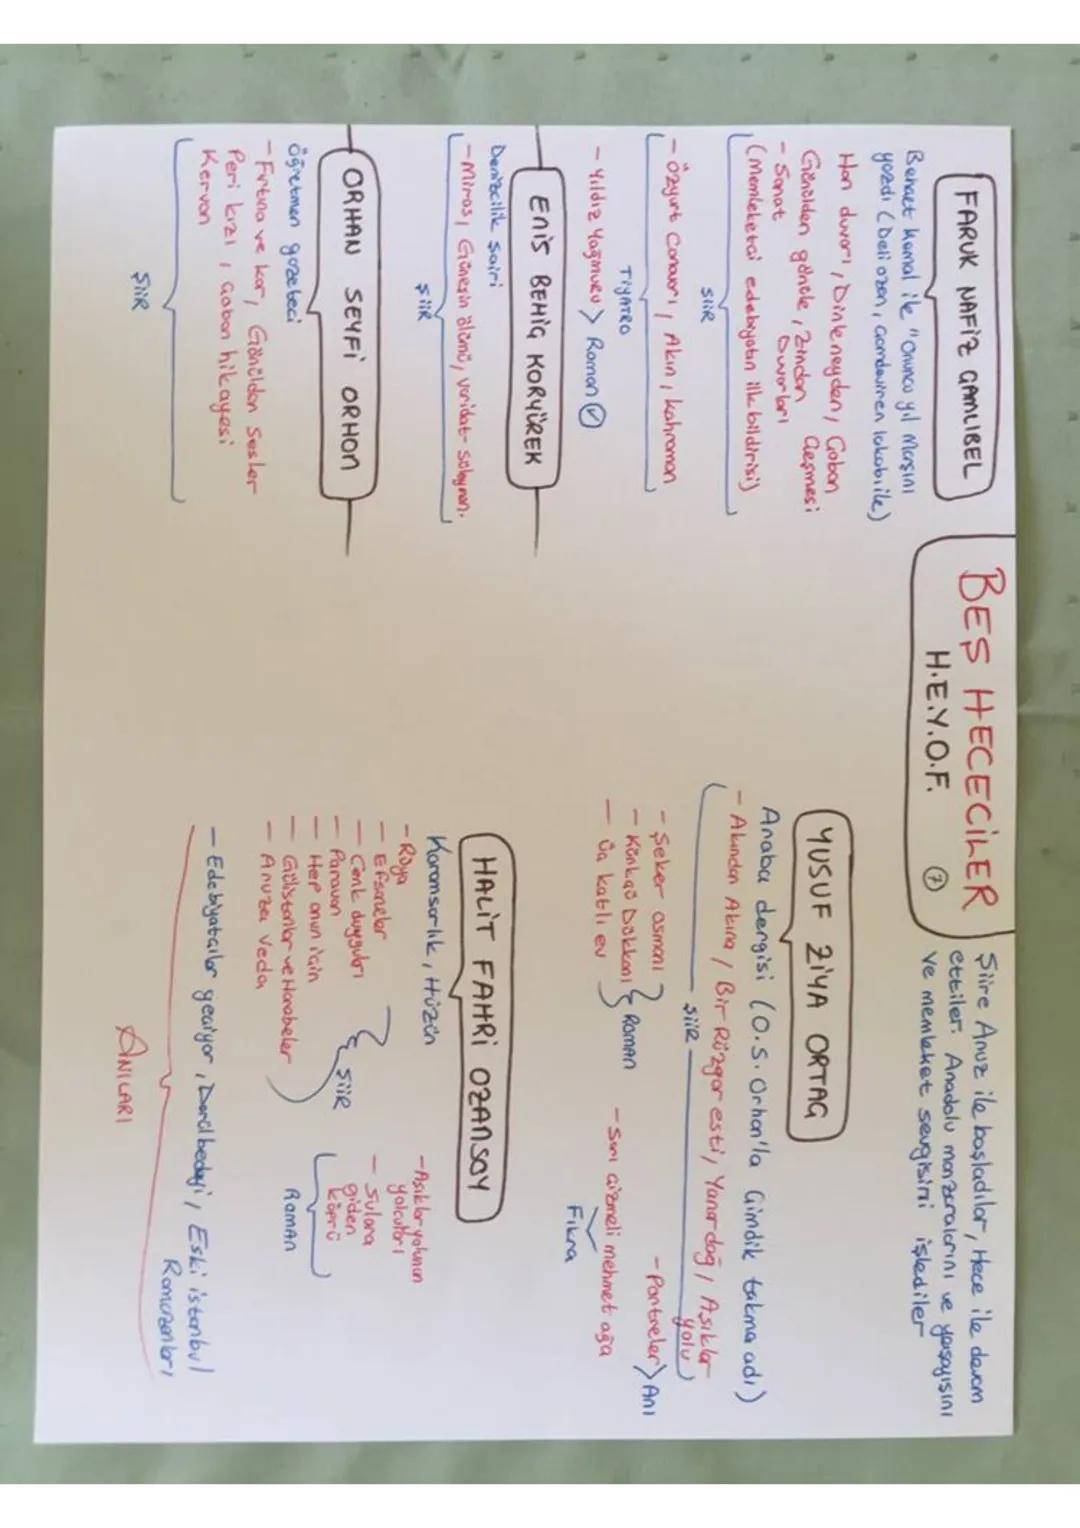 BEŞ HECECİLER
H.E.Y.O.F.
7
Şiire Aruz ile başladılar, Hece ile devam
ettiler. Anadolu manzaralarını ve yaşayışını
ve memleket sevgisini işlediler
FARUK NAFİZ ÇAMLIBEL
Behçet Kemal ile "Onuncu yıl Marşını
yazdı (Deli ozan, Çamdeviren lakabı ile)
Han duvarı, Dinle neyden, Çoban
Çeşmesi
Gönülden gönüle, Zindan
Duvarları
- Sanat
(Memleketçi edebiyatın ilk bildirisi)
ŞİİR
- Özyurt Canavarı, Akın, Kahraman
TiyATRO
- Yıldız Yağmuru > Roman
ENİS BEHİÇ KORYÜREK
Denizcilik şairi
- Miras, Güneşin ölümü, varidat-süleyman.
ŞİİR
ORHAN SEYFİ ORHON
Öğretmen gözeteci
- Fırtına ve kar, Gönülden Sesler
Peri kızı, Çoban hikayesi
Kervan
ŞİİR
YUSUF ZİYA ORTAÇ
Anaba dergisi (O.S. Orhon'la Çimdik takma adı)
- Akından Akına / Bir Rüzgar esti, Yanardağ, Aşıklar
yolu
ŞİİR
- Şeker osmanı
- Kürkçü Dükkanı
- Üç katlı ev
ROMAN
- Portreler > ANI
- Sarı çizmeli mehmet ağa
Fıkra
HALİT FAHRİ OZANSOY
Karamsarlık, Hüzün
- Rüya
- Efsaneler
- Cenk duyguları
- Paravan
- Hep onun için
- Gülistanlar ve Harabeler
- Aruza Veda
ŞİİR
- Aşıklar yolunun
yolcuları
- Sulara
giden
köprü
ROMAN
- Edebiyatçılar geçiyor, Darülbedayi, Eski istanbul
Ramazanları
ANILARI